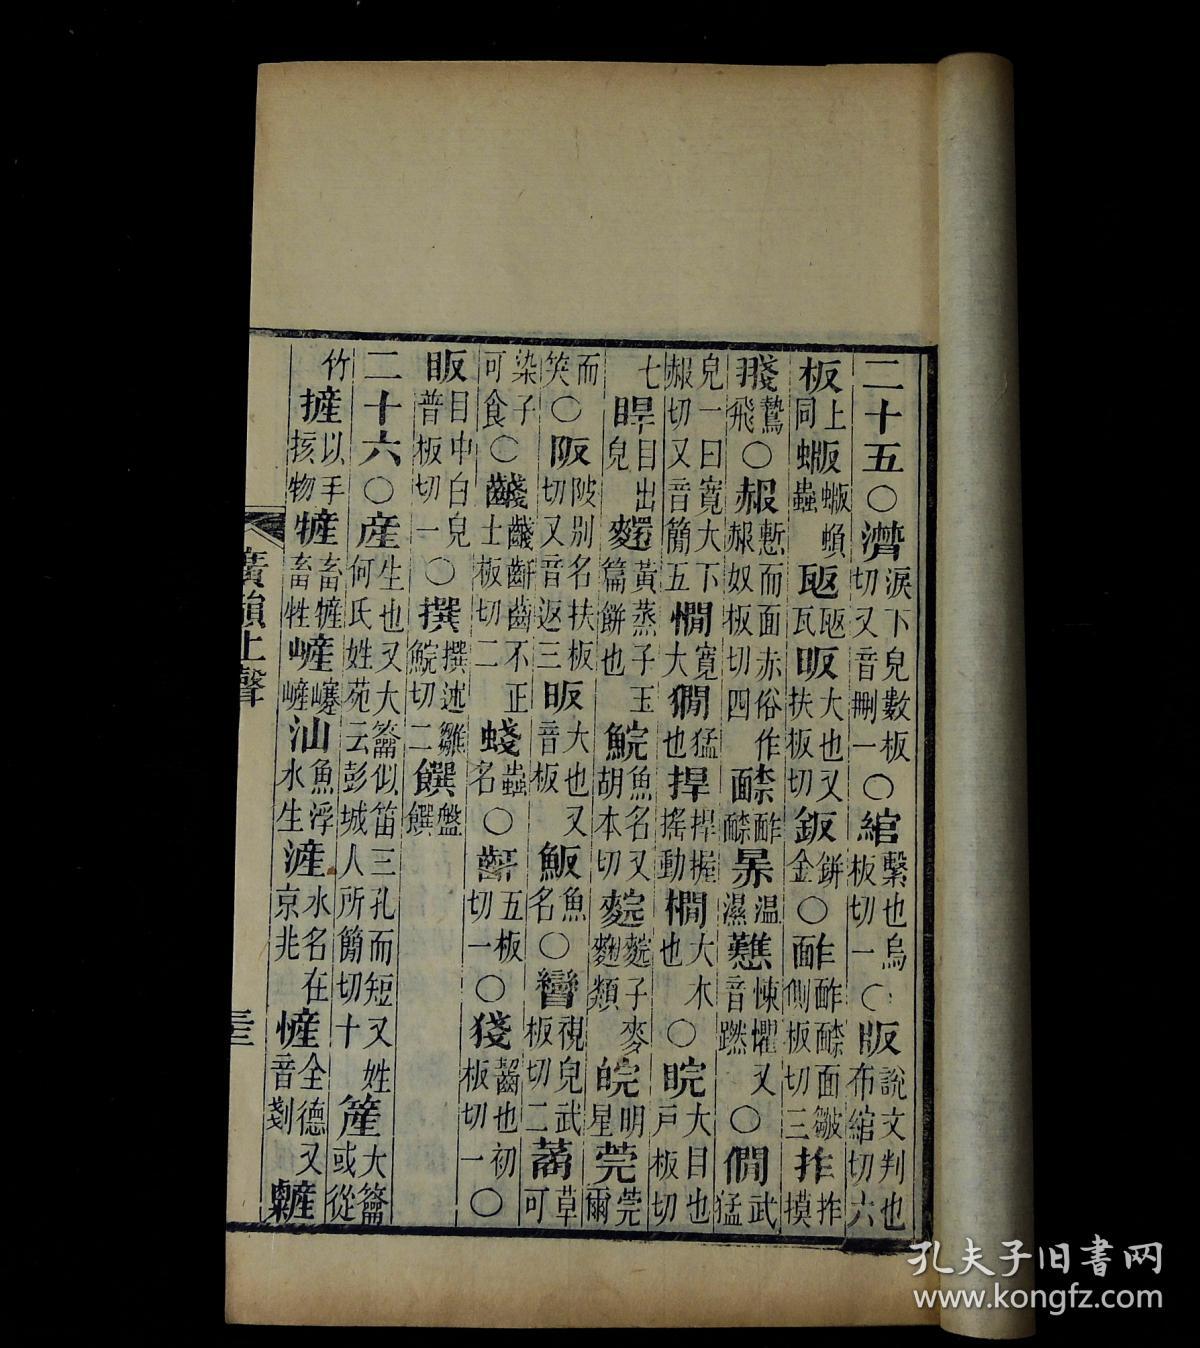 二十五○潸淚下皃數板切又音刪一○綰繫也烏板切一○版說文判也布綰切六
板上同蝂蝂蝜蟲瓪瓪瓦昄大也又扶板切鈑鉼金○䩆面皺側板切三拃拃摸
鷙飛○赧慙而面赤俗作赧奴板切四溫濕戁悚懼又音蹨○僩武猛
皃一曰寬大下赧切又音簡五憪寬大猛也捍捍握搖動橌大木也○睆大目也戶板切
七睅目出皃黃蒸子玉篇餅也鯇魚名又胡本切䴷䴷子麥麴類晥明星莞莞爾
而笑○阪陂別名扶板切又音返三昄大也又音板魬魚名○矕視皃武板切二草可
染子可食○齒不正士板切二蟲名○五板切一○齧也初板切一○
眅目中白皃普板切一○撰撰述雛鯇切二饌盤饌
二十六○産生也又大籥似笛三孔而短又姓何氏姓苑云彭城人所簡切十簅大籥或從
竹摌以手核物㹌畜㹌畜牲嵼㠍嵼汕魚浮水生滻水名在京兆全德又音剗
廣韻上聲
三三
孔夫子旧書网
www.kongfz.com